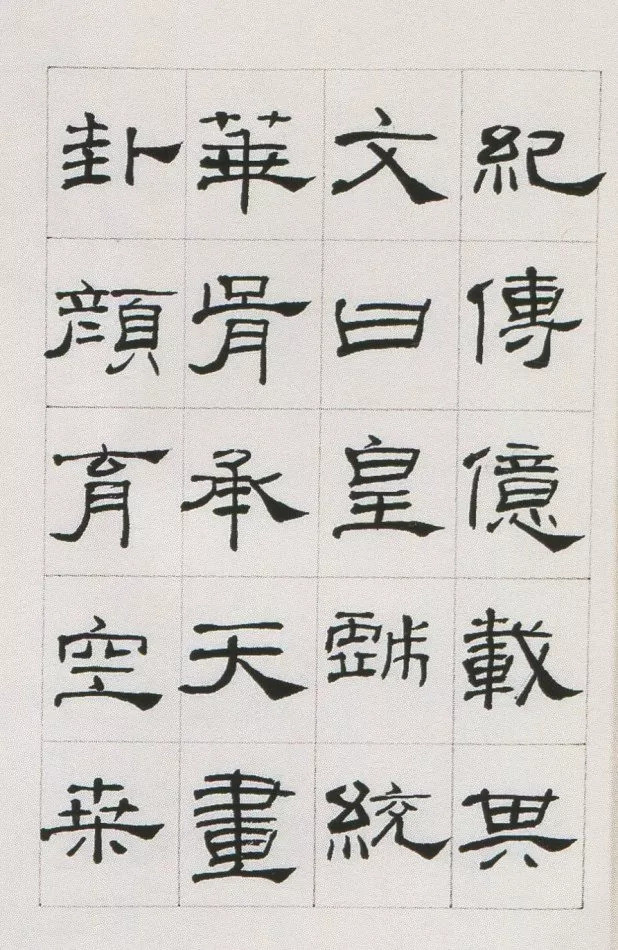 紀傳億載其
文曰皇戲統
華胥承天畫
卦顏育空桒